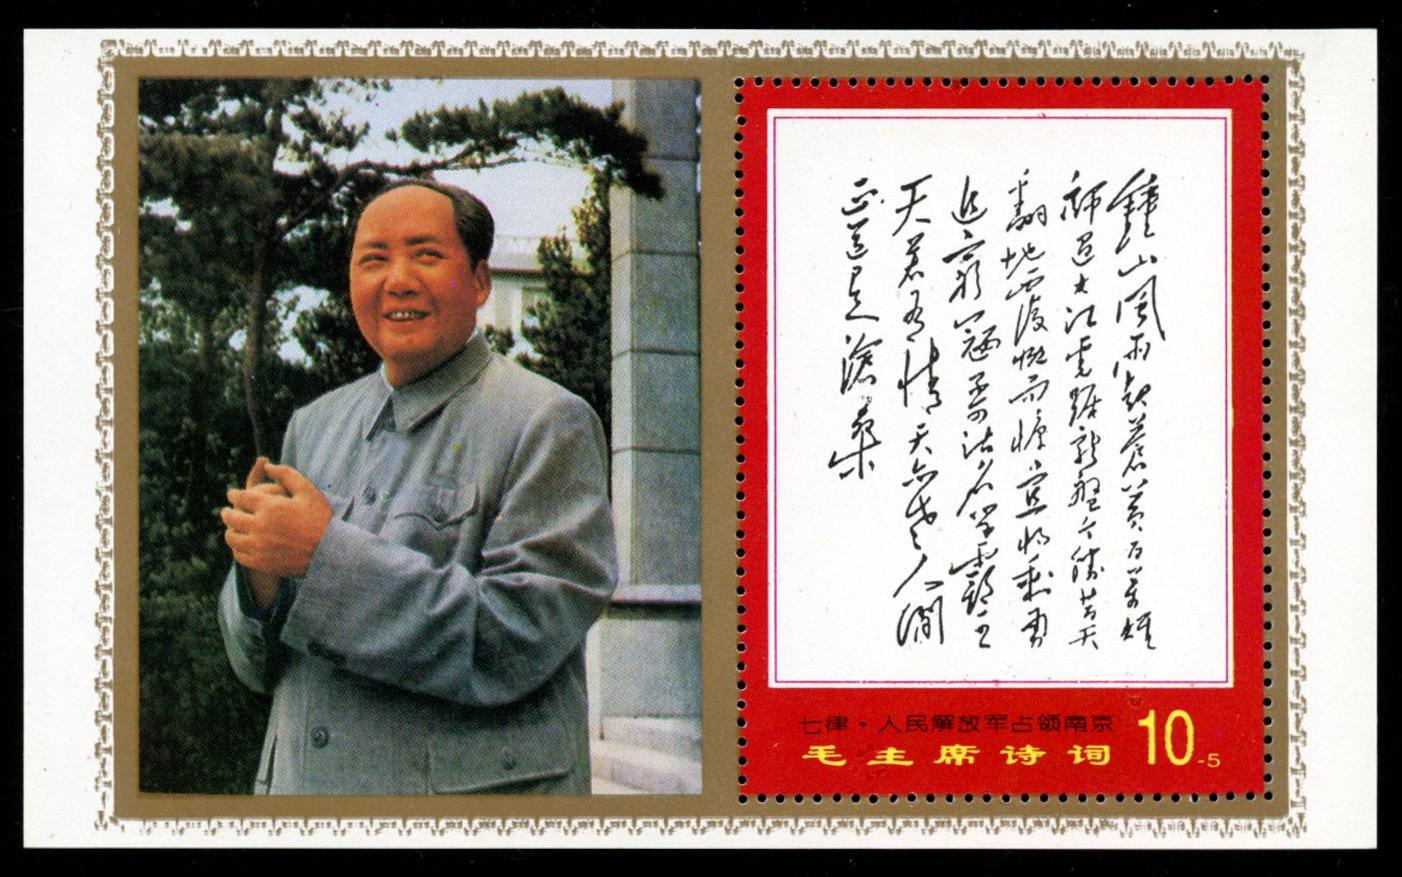 鍾山風雨起蒼黃百萬雄
師過大江虎踞龍盤今勝昔天
翻地覆慨而慷宜將剩勇
追窮寇不可沽名學霸王
天若有情天亦老人間
正道是滄桑
七律·人民解放军占领南京
毛主席诗词
10-5